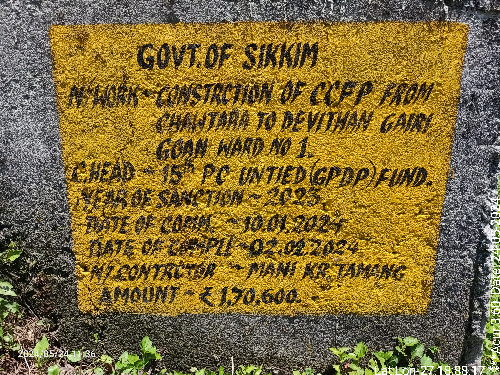 GOVT. OF SIKKIM
N° WORK ~ CONSTRCTION OF CCFP FROM
CHAWTARA TO DEVITHAN GAIRI
GOAN WARD NO 1.
C.HEAD ~ 15th PC UNTIED (GPDP) FUND.
YEAR OF SANCTION ~ 2023
DATE OF COMM. ~ 10.01.2024
DATE OF COMPLE ~ 02.02.2024
N? CONTRCTOR ~ MANI KR. TAMANG
AMOUNT ~ ₹ 1,70,600.